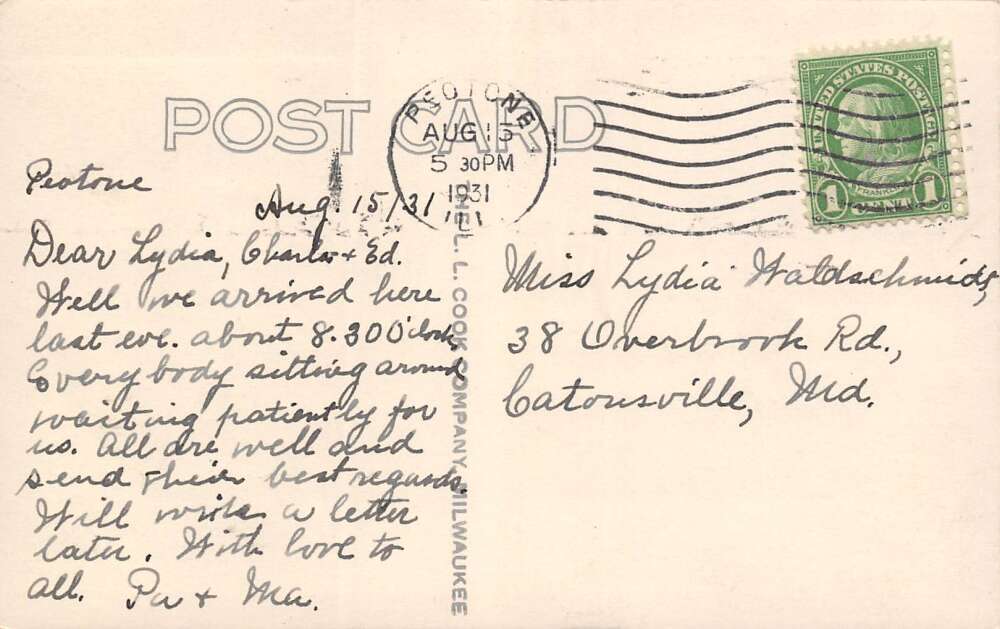 POST CARD
PEOTONE
AUG 15
5 30PM
1931
ILL.
UNITED STATES POSTAGE
FRANKLIN
1 CENT 1
Peotone
Aug. 15/31
Dear Lydia, Charles + Ed.
Well we arrived here
last eve. about 8.30 O'clock
Everybody sitting around
waiting patiently for
us. All are well and
send thier best regards.
Will write a letter
later. With love to
all. Pa + Ma.
THE L. L. COOK COMPANY, MILWAUKEE
Miss Lydia Waldschmidt,
38 Overbrook Rd.,
Catonsville, Md.